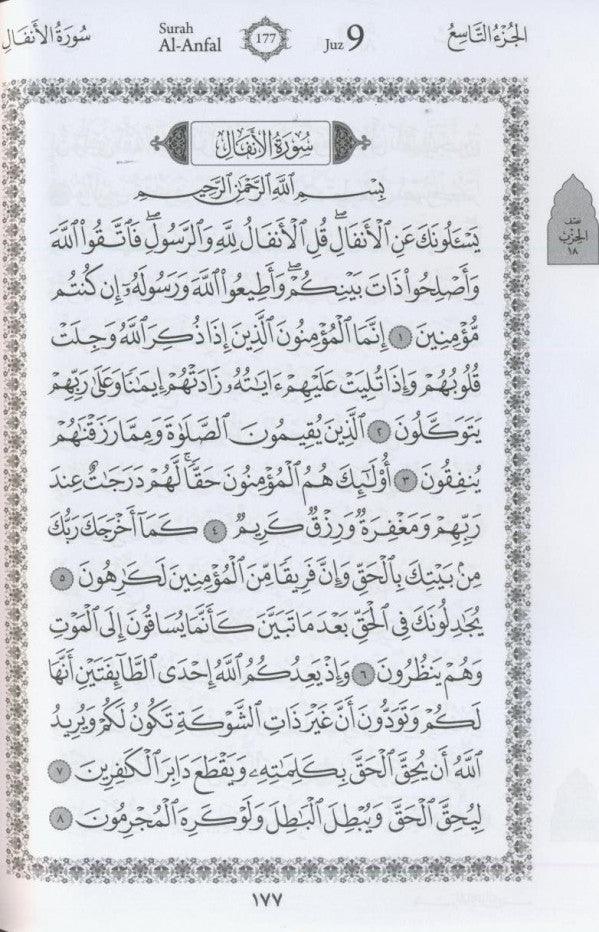 سُورَةُ الأَنفَال
Surah
Al-Anfal
177
Juz 9
الجُزْءُ التَّاسِعُ
سُورَةُ الأَنفَالِ
بِسْمِ اللَّهِ الرَّحْمَٰنِ الرَّحِيمِ
يَسْـَٔلُونَكَ عَنِ ٱلْأَنفَالِ ۖ قُلِ ٱلْأَنفَالُ لِلَّهِ وَٱلرَّسُولِ ۖ فَٱتَّقُوا۟ ٱللَّهَ
وَأَصْلِحُوا۟ ذَاتَ بَيْنِكُمْ ۖ وَأَطِيعُوا۟ ٱللَّهَ وَرَسُولَهُۥٓ إِن كُنتُم
مُّؤْمِنِينَ ١ إِنَّمَا ٱلْمُؤْمِنُونَ ٱلَّذِينَ إِذَا ذُكِرَ ٱللَّهُ وَجِلَتْ
قُلُوبُهُمْ وَإِذَا تُلِيَتْ عَلَيْهِمْ ءَايَٰتُهُۥ زَادَتْهُمْ إِيمَٰنًا وَعَلَىٰ رَبِّهِمْ
يَتَوَكَّلُونَ ٢ ٱلَّذِينَ يُقِيمُونَ ٱلصَّلَوٰةَ وَمِمَّا رَزَقْنَٰهُمْ
يُنفِقُونَ ٣ أُو۟لَٰٓئِكَ هُمُ ٱلْمُؤْمِنُونَ حَقًّا ۚ لَّهُمْ دَرَجَٰتٌ عِندَ
رَبِّهِمْ وَمَغْفِرَةٌ وَرِزْقٌ كَرِيمٌ ٤ كَمَآ أَخْرَجَكَ رَبُّكَ
مِنۢ بَيْتِكَ بِٱلْحَقِّ وَإِنَّ فَرِيقًا مِّنَ ٱلْمُؤْمِنِينَ لَكَٰرِهُونَ ٥
يُجَٰدِلُونَكَ فِى ٱلْحَقِّ بَعْدَ مَا تَبَيَّنَ كَأَنَّمَا يُسَاقُونَ إِلَى ٱلْمَوْتِ
وَهُمْ يَنظُرُونَ ٦ وَإِذْ يَعِدُكُمُ ٱللَّهُ إِحْدَى ٱلطَّآئِفَتَيْنِ أَنَّهَا
لَكُمْ وَتَوَدُّونَ أَنَّ غَيْرَ ذَاتِ ٱلشَّوْكَةِ تَكُونُ لَكُمْ وَيُرِيدُ
ٱللَّهُ أَن يُحِقَّ ٱلْحَقَّ بِكَلِمَٰتِهِۦ وَيَقْطَعَ دَابِرَ ٱلْكَٰفِرِينَ ٧
لِيُحِقَّ ٱلْحَقَّ وَيُبْطِلَ ٱلْبَٰطِلَ وَلَوْ كَرِهَ ٱلْمُجْرِمُونَ ٨
نصف
الحزب
١٨
١٧٧